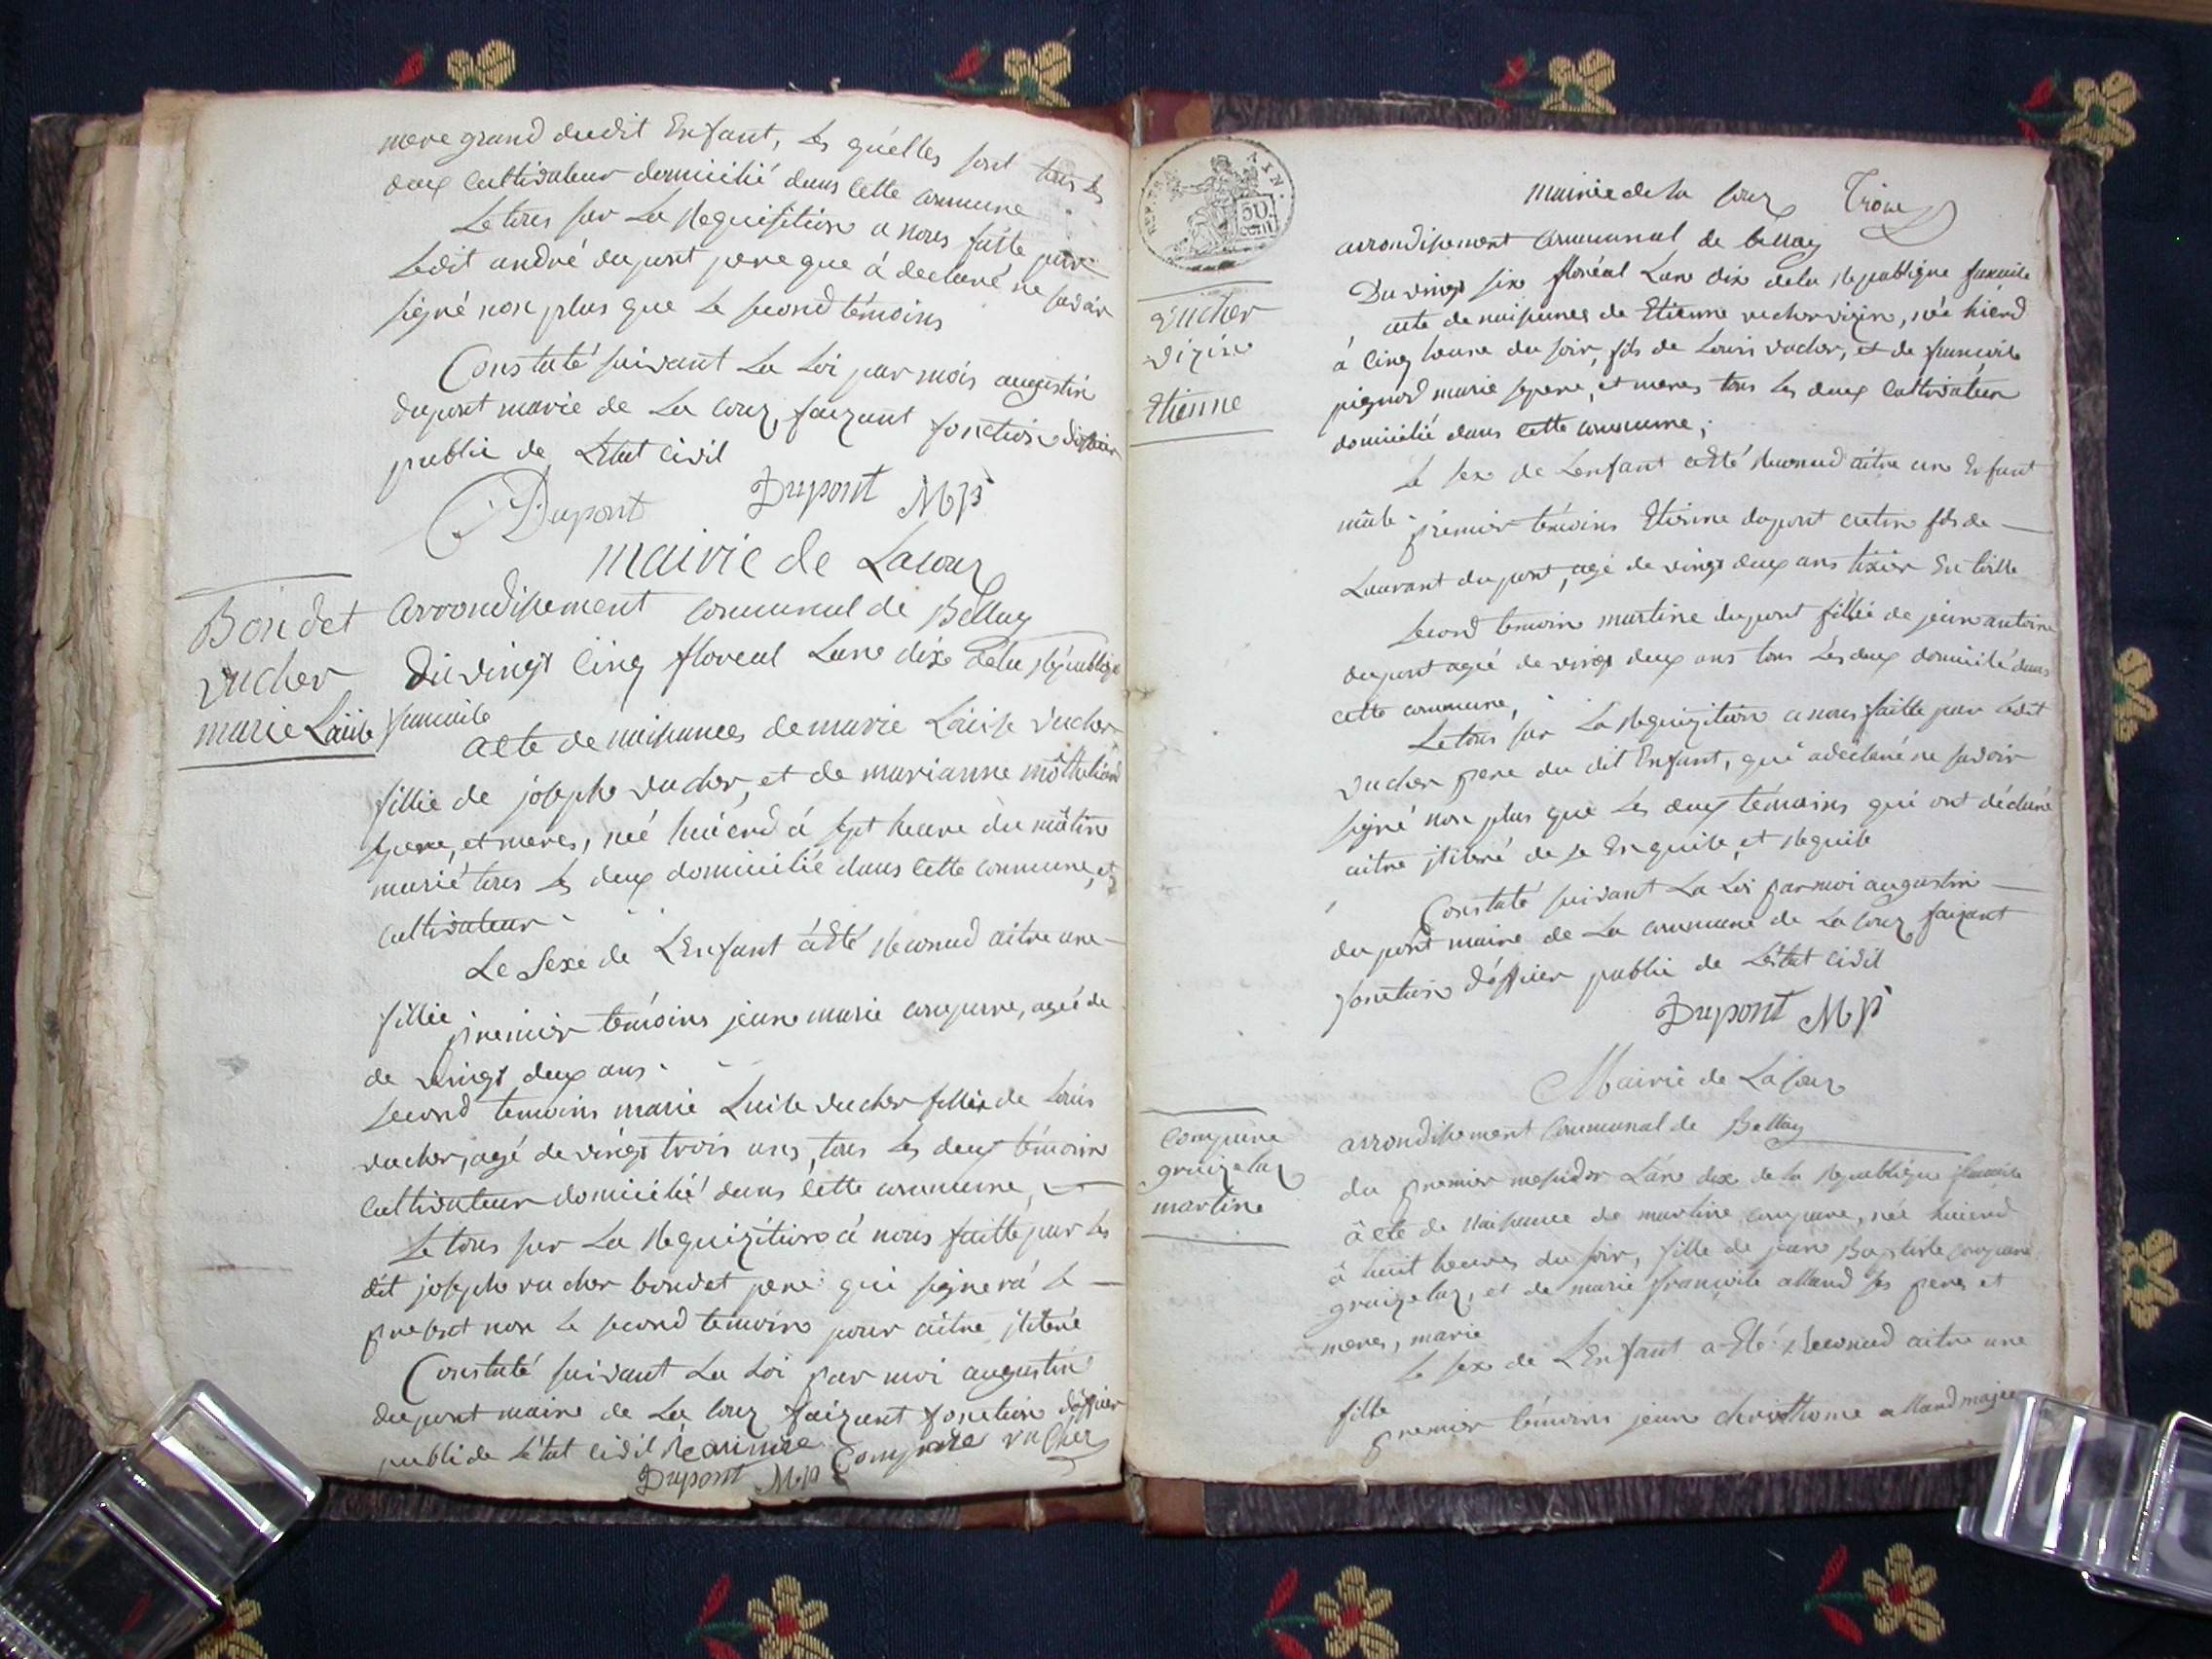 mere grand dudit Enfant, Les quélles sont tous les
deux Cultivateur domicilié dans Cette Commune
Le tous sur La Requisition a nous faitte par
Ledit andré dupont pere que à declaré ne savoir
signé non plus que Le second témoins
Constaté suivant La Loi par mois augustin
dupont marie de La Coux, faizant fonction
public de LEtat Civil
Dupont Dupont M
mairie de Lacoux
Bondet
vucher
marie Laiise
arrondissement Communal de Belley
Du vingt Cinq floreal Lane dixe dela Républiq
francaise
acte de naissances de marie Laiise vucher
fillie de joseph vucher, et de marianne
pere, et meres, née hierd á sept heure du mâtin
marié tous Les deux domicilié dans Cette Commune, et
Cultivateur
Le Sexe de LEnfant à Eté Reconud aitre une
fillie
premier témoins jeane marie compune, ageé de
de vingt deux ans
second temoins marie Luise vucher fillie de Louis
vucher, agé de vingt trois ans, tous Les deux témoin
Cultivateur domicilié dans Cette Commune,
Le tous sur La Requizition á nous faitte par Les
dit joseph vucher bondet pere qui signera Le
present non Le second temoin pour aitre
Constaté suivant La Loi par moi augustin
dupont maire de La Coux faizant fonction dofficier
publi de L'Etat Civil vucher
Dupont M
AIN.
50
cent
mairie de la Coux Troie
arrondissement Communal de belley
Du vingt six floréal Lan dix dela Republique francaise
acte de naissances de Etienne vucher vizin, née hierd
á Cinq heure du soir, fils de Louis vucher, et de francoise
pignod marie sepere, et meres tous Les deux Cultivateur
domicilié dans Cette Commune,
vucher
vizin
Etienne
Le sex de Lenfant a Eté Reconud aitre un Enfant
mâle
premier témoins Etienne dupont cretin fils de
Laurant dupont, agé de vingt deux ans tixier En toille
second temoin martine dupont fillie de jean antoine
dupont ageé de vingt deux ans tous Les deux domicilié dans
cette commune,
Le tous sur La Requizition a nous faitte par Ledit
vucher pere du dit Enfant, qui a declaré ne savoir
signé non plus que Les deux témoins qui ont déclaré
aitre de Se Enquise, et Requise
Constaté suivant La Loi par moi augustin
dupont maire de La Commune de La Coux faizant
fonction d'officier public de Létat Civil
Dupont M
Mairie de La Coux
arrondissement Communal de Belley
Compune
graizelaz
martine
du premier messidor L'an dix de la Republique francaise
âcte de Naissance de martine compune, née hierd
â huit heures du soir, fille de jean Baptiste compune
graizelaz, et de marie francoise alland ses peres et
meres, marie
Le sex de LEnfant a Eté Reconud aitre une
fille
premier témoins jean alland majeur